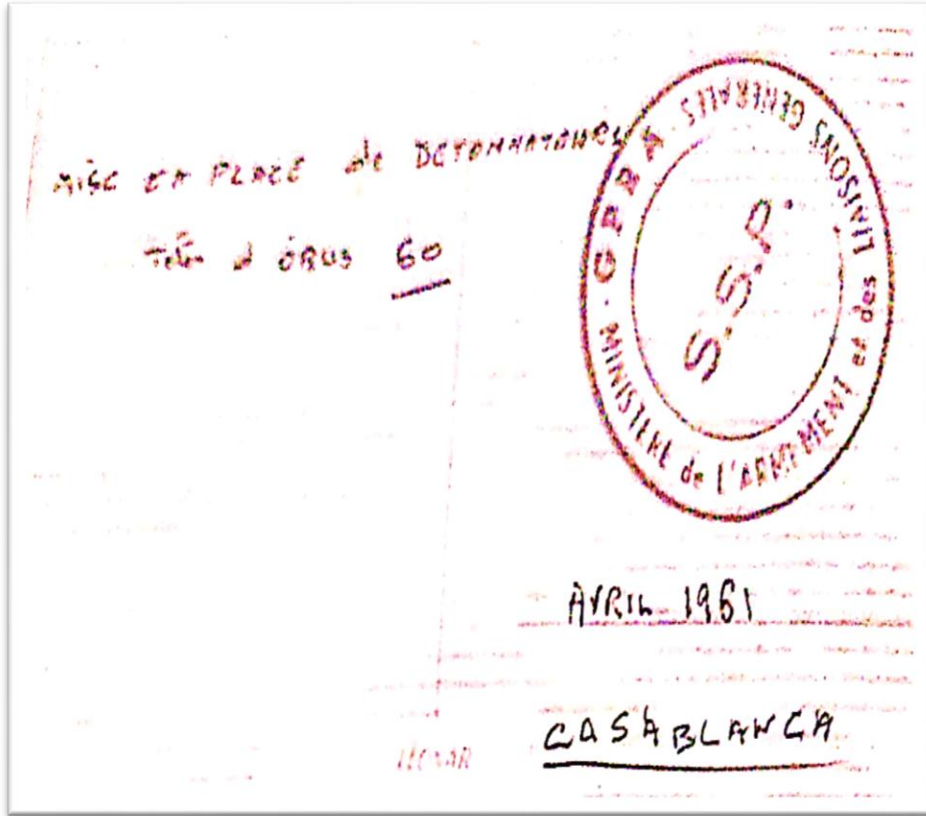 MISE EN PLACE de DETONNATEURS
d'ORUS 60
MINISTERE de L'ARMEMENT et des LIAISONS GENERALES · GPRA ·
S.S.P.
AVRIL 1961
CASABLANCA